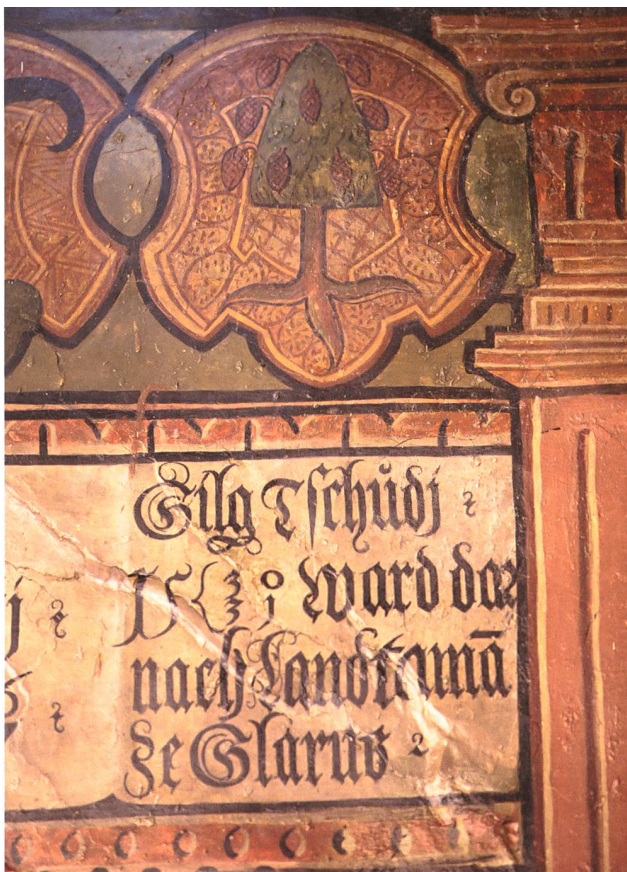 Gilg Tschůdj
ward dar
nach Landtamā
ze Glarus